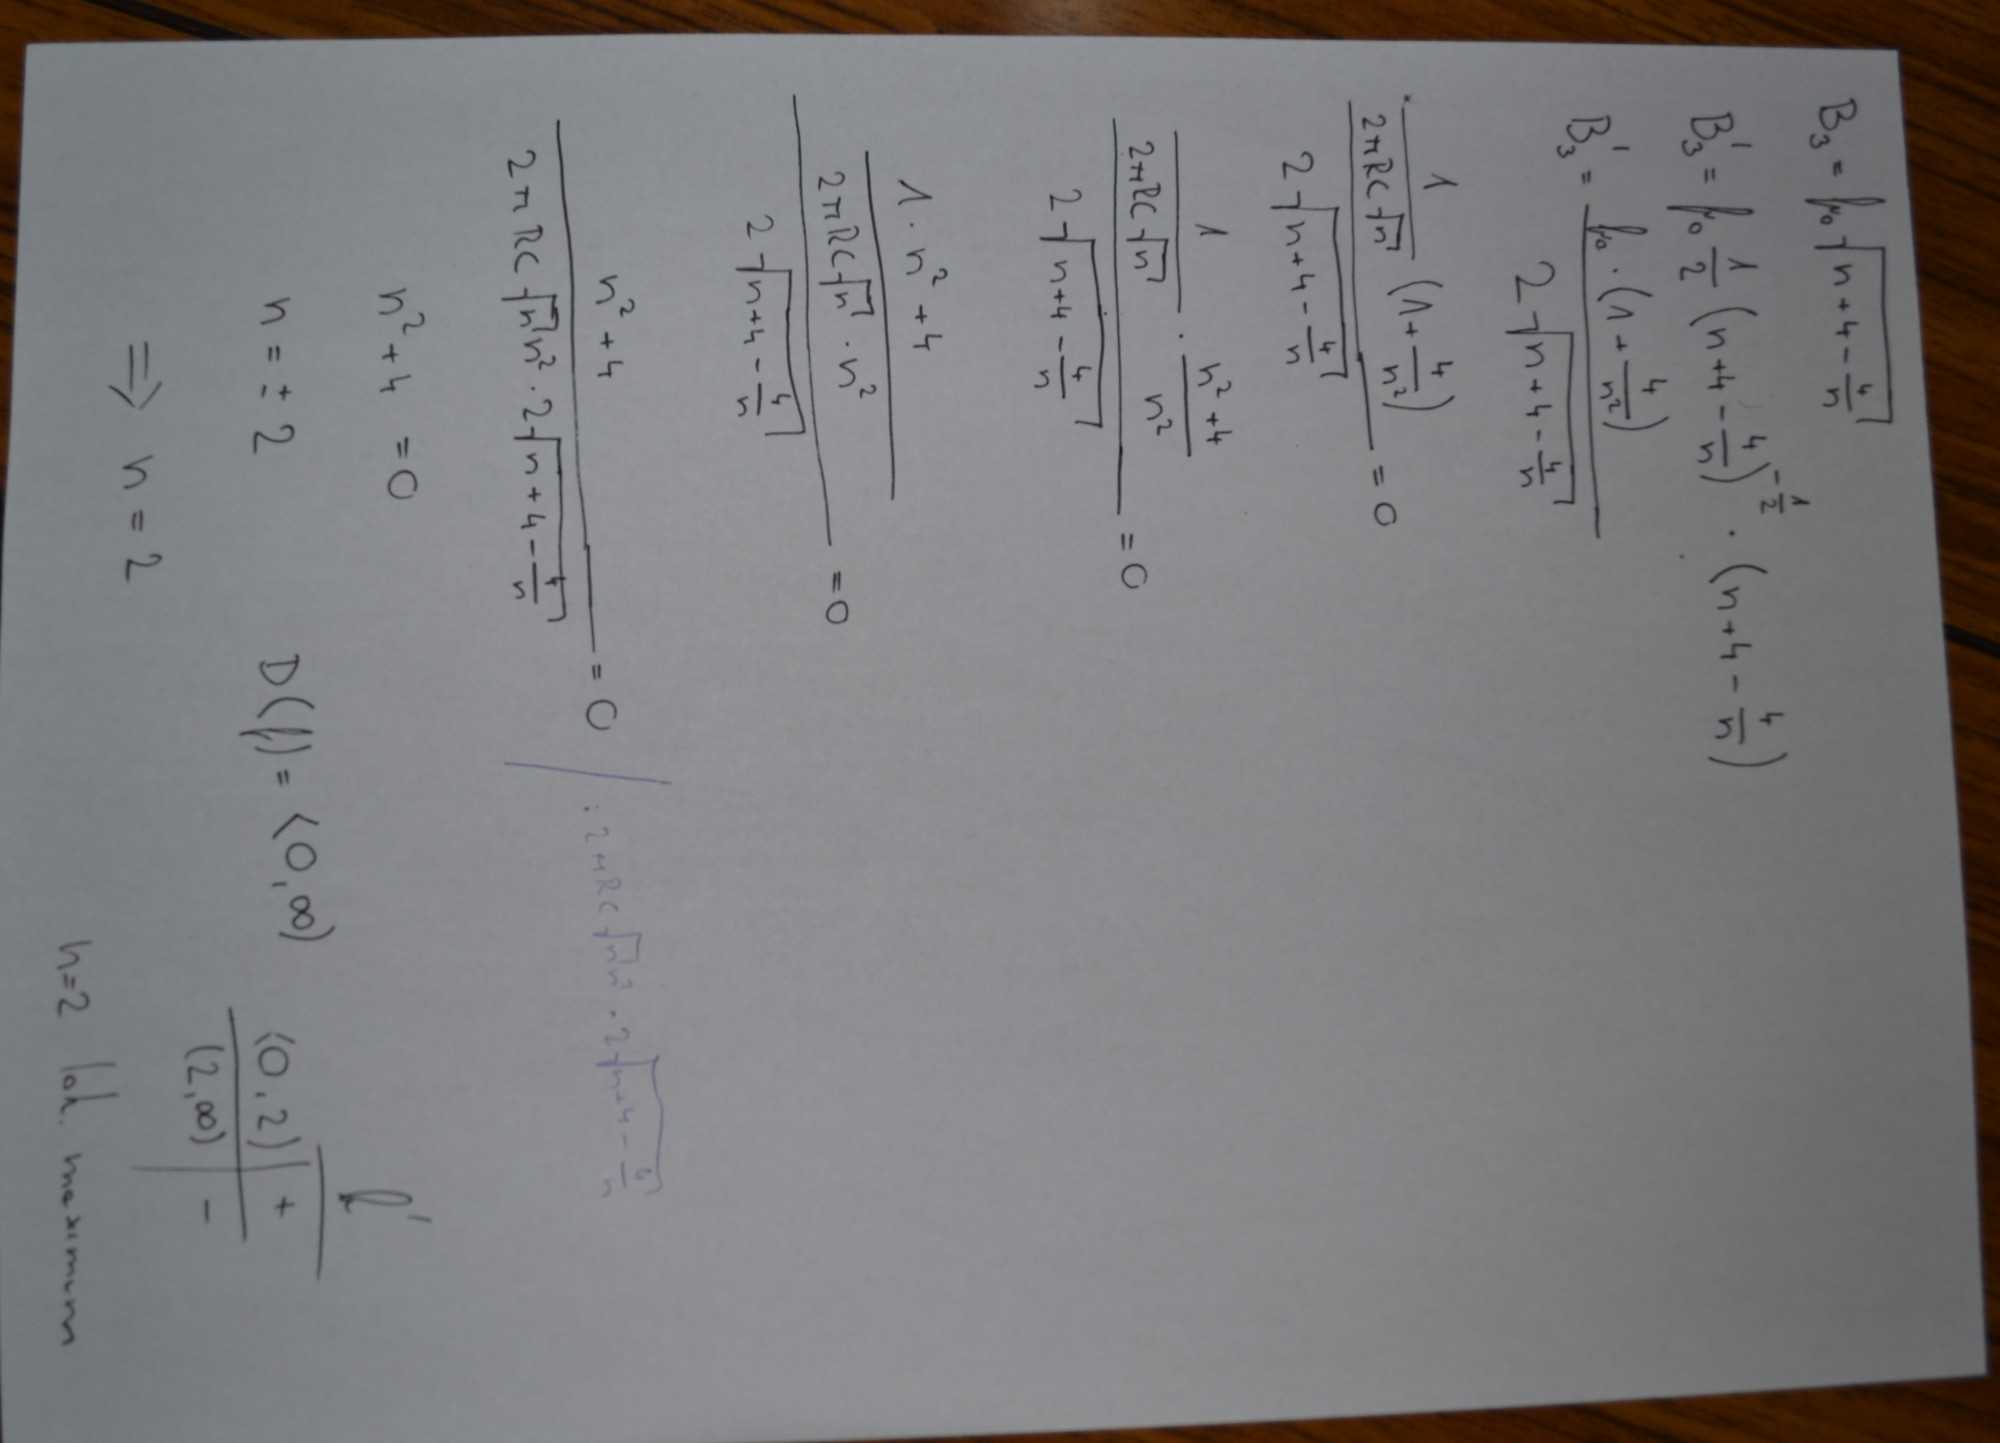 B₃ = f₀ √(n+4-4/n)
B₃' = f₀ 1/2 (n+4-4/n)^(-1/2) · (n+4-4/n)
B₃' = (f₀ · (1+4/n²)) / (2√(n+4-4/n))
((1/(2πRC√n)) (1+4/n²)) / (2√(n+4-4/n)) = 0
((1/(2πRC√n)) · ((n²+4)/n²)) / (2√(n+4-4/n)) = 0
((1·n²+4)/(2πRC√n · n²)) / (2√(n+4-4/n)) = 0
(n²+4) / (2πRC√n n² · 2√(n+4-4/n)) = 0 / : 2πRC√n n² · 2√(n+4-4/n)
n²+4 = 0
n = ± 2 D(f) = <0,∞)
⇒ n = 2
f'
<0,2) | +
(2,∞) | -
n=2 lok. maximum